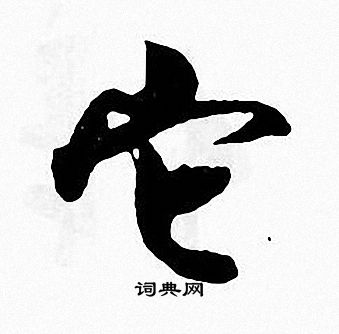 它
词典网